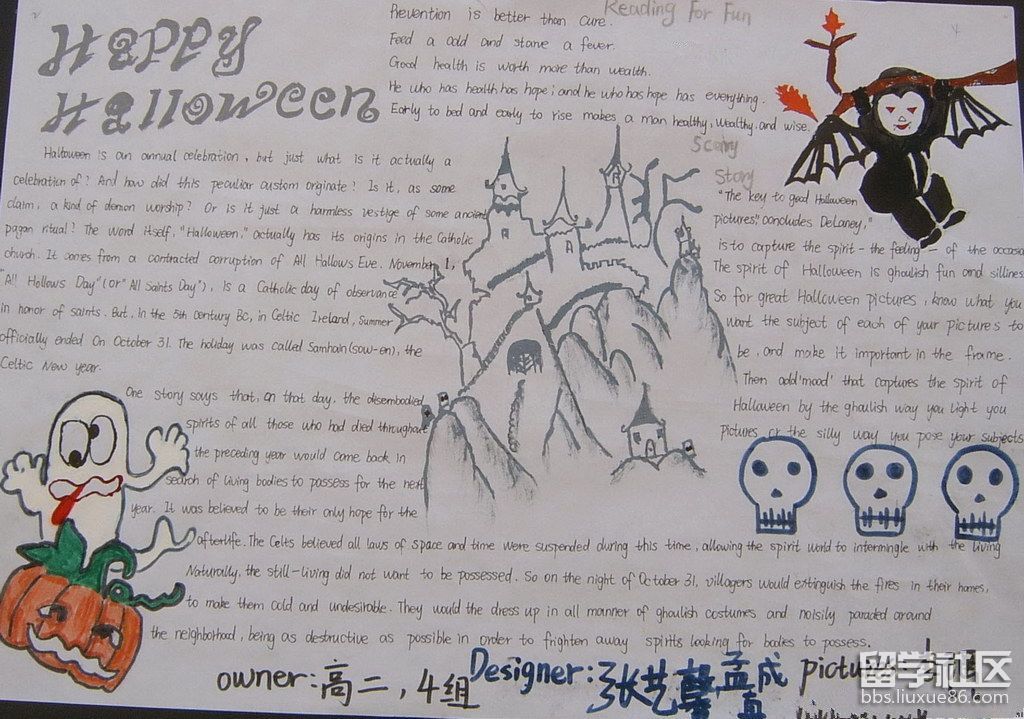 Happy
Halloween
Reading For Fun
Prevention is better than cure.
Feed a cold and starve a fever.
Good health is worth more than wealth.
He who has health has hope; and he who has hope has everything.
Early to bed and early to rise makes a man healthy, wealthy, and wise.
Halloween is an annual celebration, but just what is it actually a
celebration of? And how did this peculiar custom originate? Is it, as some
claim, a kind of demon worship? Or is it just a harmless vestige of some ancient
pagan ritual? The word itself, "Halloween," actually has its origins in the Catholic
church. It comes from a contracted corruption of All Hallows Eve. November 1,
"All Hollows Day" (or "All Saints Day"), is a Catholic day of observance
in honor of saints. But, in the 5th century BC, in Celtic Ireland, summer
officially ended On October 31. The holiday was called Samhain (sow-en), the
Celtic New year.
One story says that, on that day, the disembodied
spirits of all those who had died throughout
the preceding year would come back in
search of living bodies to possess for the next
year. It was believed to be their only hope for the
afterlife. The Celts believed all laws of space and time were suspended during this time, allowing the spirit world to intermingle with the living
Naturally, the still-living did not want to be possessed. So on the night of October 31, villagers would extinguish the fires in their homes,
to make them cold and undesirable. They would the dress up in all manner of ghoulish costumes and noisily paraded around
the neighborhood, being as destructive as possible in order to frighten away spirits looking for bodies to possess.
Scary
Story
"The key to good Halloween
pictures," concludes DeLaney,"
is to capture the spirit - the feeling - of the occasion
The spirit of Halloween is ghoulish fun and silliness
So for great Halloween pictures, know what you
want the subject of each of your pictures to
be, and make it important in the frame.
Then add 'mood' that captures the spirit of
Halloween by the ghoulish way you light you
pictures or the silly way you pose your subjects
owner: 高二, 4组
Designer: 张艺馨 孟成真
picture
留学社区
bbs.liuxue86.com